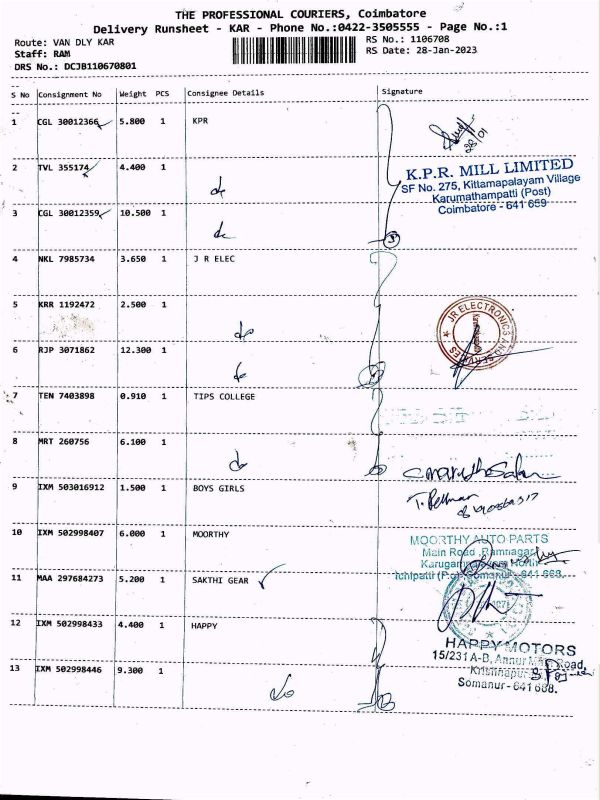 THE PROFESSIONAL COURIERS, Coimbatore
Delivery Runsheet - KAR - Phone No.:0422-3505555 - Page No.:1
Route: VAN DLY KAR
RS No.: 1106708
Staff: RAM
RS Date: 28-Jan-2023
DRS No.: DCJB110670801
S No Consignment No Weight PCS Consignee Details Signature
1 CGL 30012366 5.800 1 KPR
28/01
2 TVL 355174 4.400 1
do
K.P.R. MILL LIMITED
SF No. 275, Kittamapalayam Village
Karumathampatti (Post)
Coimbatore - 641 659
3 CGL 30012359 10.500 1
do
4 NKL 7985734 3.650 1 J R ELEC
5 KRR 1192472 2.500 1
do
JR ELECTRONICS AND SERVICES
6 RJP 3071862 12.300 1
do
7 TEN 7403898 0.910 1 TIPS COLLEGE
8 MRT 260756 6.100 1
do
9 IXM 503016912 1.500 1 BOYS GIRLS
10 IXM 502998407 6.000 1 MOORTHY
MOORTHY AUTO PARTS
Main Road, Ramnagar
11 MAA 297684273 5.200 1 SAKTHI GEAR
12 IXM 502998433 4.400 1 HAPPY
HAPPY MOTORS
15/231 A-B, Annur Main Road,
Somanur - 641 668.
13 IXM 502998446 9.300 1
do